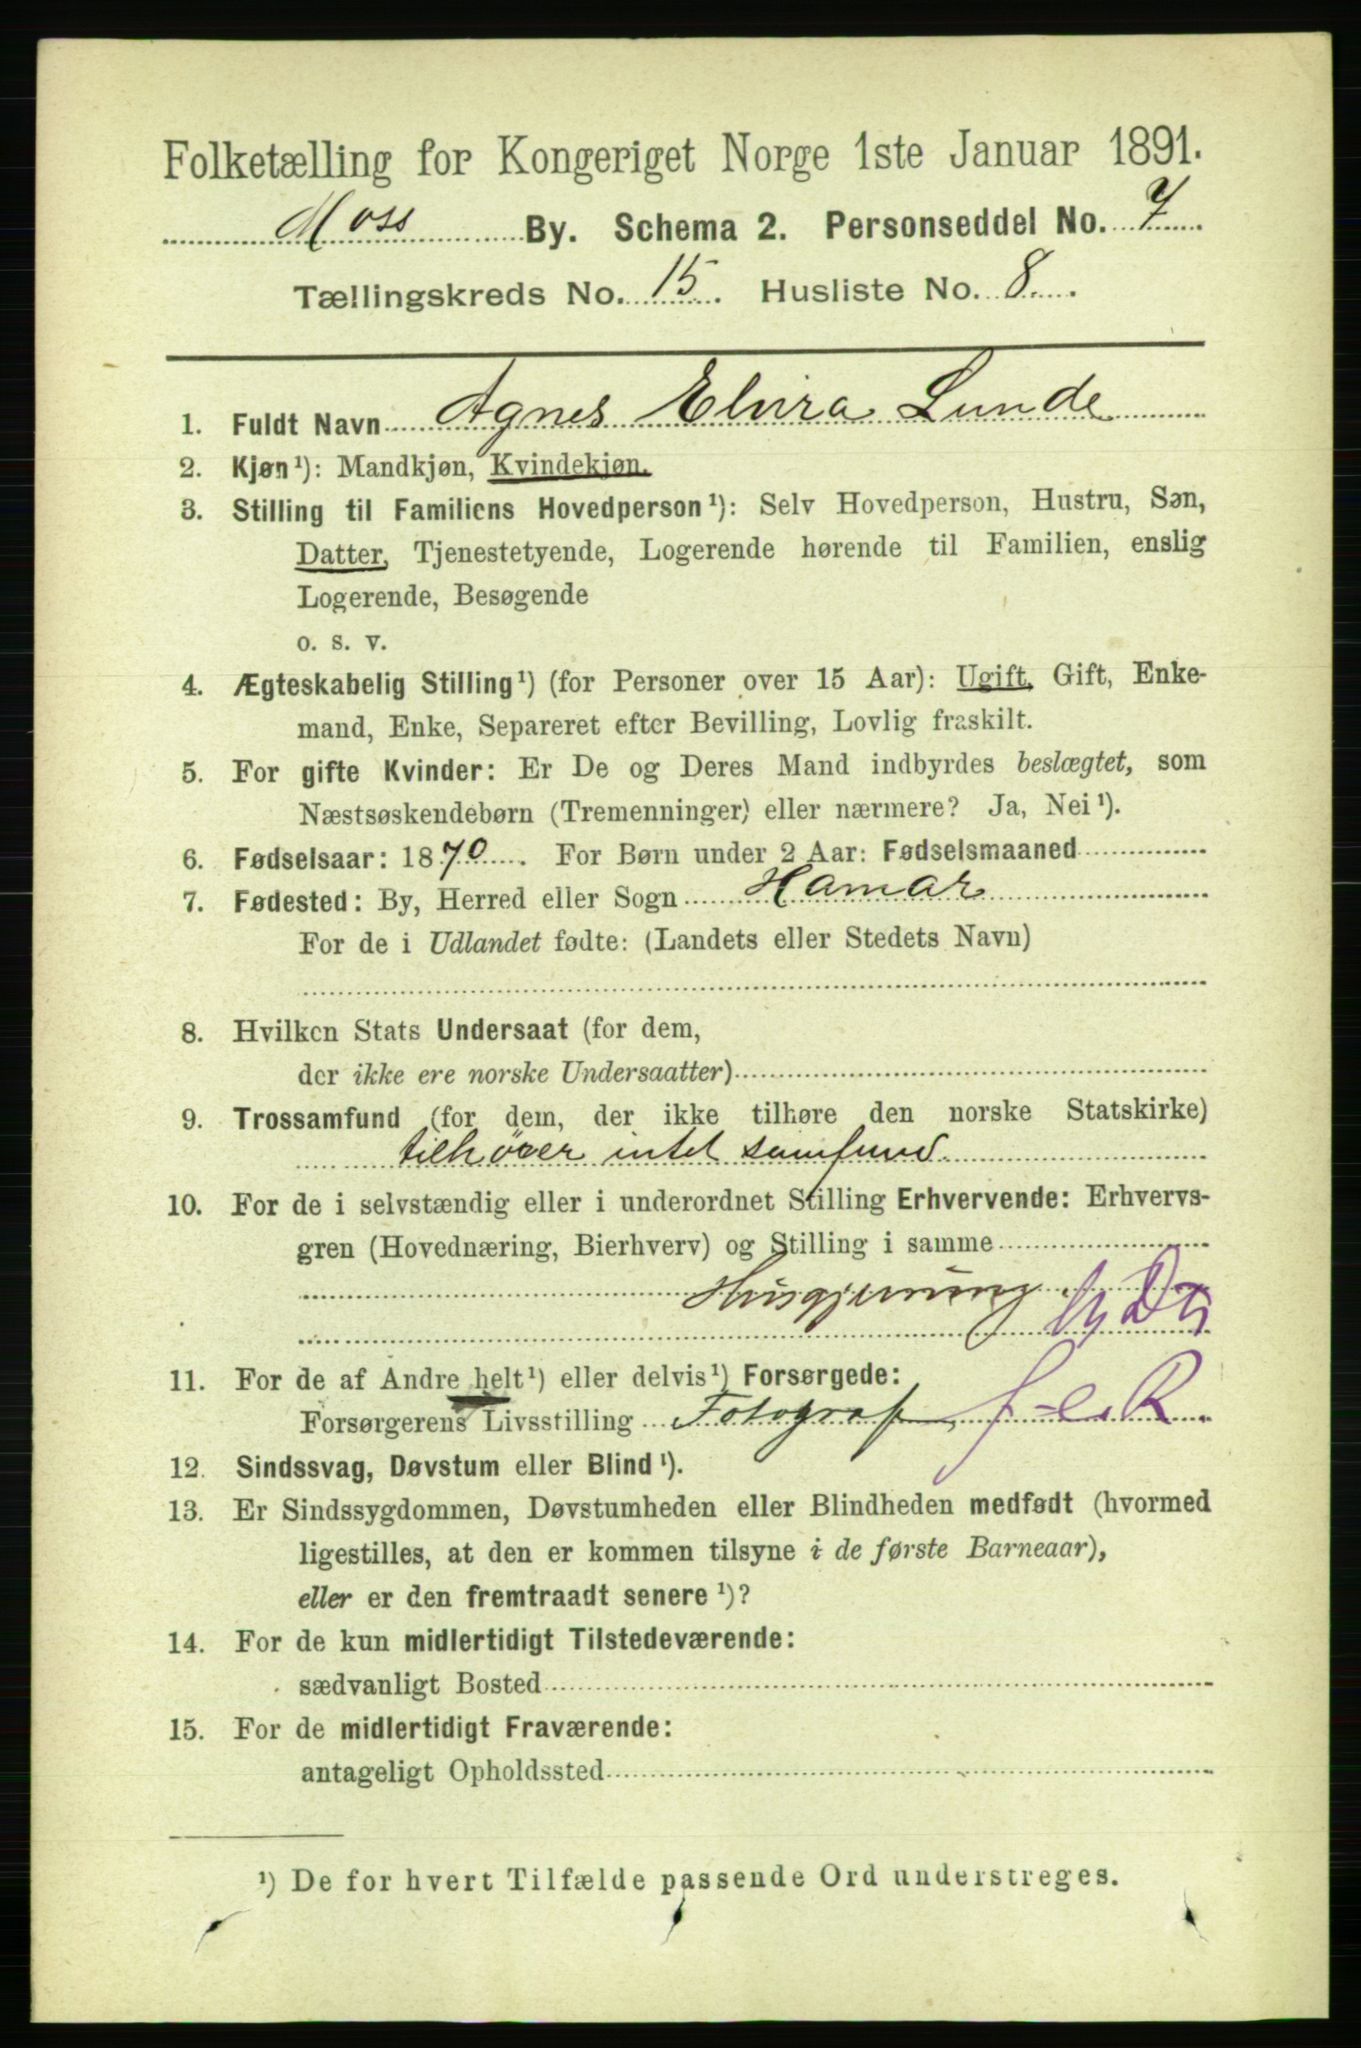 Folketælling for Kongeriget Norge 1ste Januar 1891.
Moss By. Schema 2. Personseddel No. 7
Tællingskreds No. 15. Husliste No. 8.
1. Fuldt Navn Agnes Elvira Lunde
2. Kjøn¹): Mandkjøn, Kvindekjøn.
3. Stilling til Familiens Hovedperson¹): Selv Hovedperson, Hustru, Søn,
Datter, Tjenestetyende, Logerende hørende til Familien, enslig
Logerende, Besøgende
o. s. v.
4. Ægteskabelig Stilling¹) (for Personer over 15 Aar): Ugift, Gift, Enke-
mand, Enke, Separeret efter Bevilling, Lovlig fraskilt.
5. For gifte Kvinder: Er De og Deres Mand indbyrdes beslægtet, som
Næstsøskendebørn (Tremenninger) eller nærmere? Ja, Nei¹).
6. Fødselsaar: 1870. For Børn under 2 Aar: Fødselsmaaned
7. Fødested: By, Herred eller Sogn Hamar
For de i Udlandet fødte: (Landets eller Stedets Navn)
8. Hvilken Stats Undersaat (for dem,
der ikke ere norske Undersaatter)
9. Trossamfund (for dem, der ikke tilhøre den norske Statskirke)
tilhører intet samfund
10. For de i selvstændig eller i underordnet Stilling Erhvervende: Erhvervs-
gren (Hovednæring, Bierhverv) og Stilling i samme
Husgjerning
11. For de af Andre helt¹) eller delvis¹) Forsørgede:
Forsørgerens Livsstilling Fotograf
12. Sindssvag, Døvstum eller Blind¹).
13. Er Sindssygdommen, Døvstumheden eller Blindheden medfødt (hvormed
ligestilles, at den er kommen tilsyne i de første Barneaar),
eller er den fremtraadt senere¹)?
14. For de kun midlertidigt Tilstedeværende:
sædvanligt Bosted
15. For de midlertidigt Fraværende:
antageligt Opholdssted
¹) De for hvert Tilfælde passende Ord understreges.